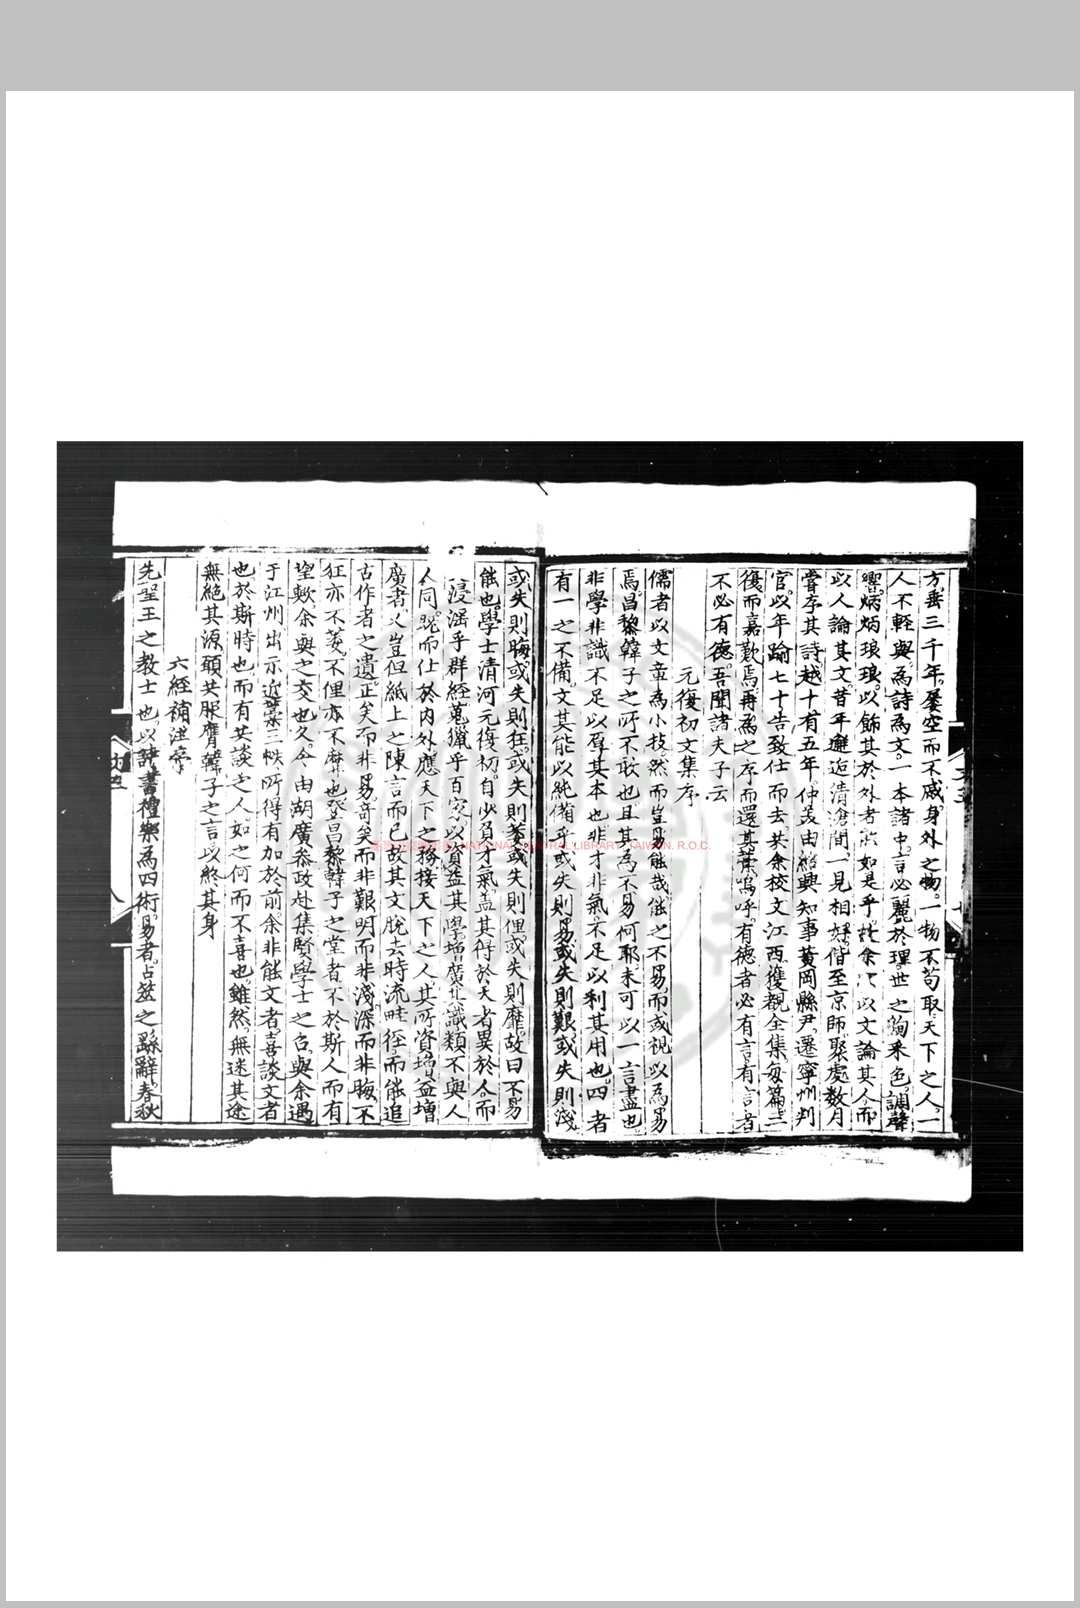 方垂三千年屢空而不戚身外之物一物不苟取天下之人一
人不輕與為詩為文一本諸中言必麗於理世之澒采色調聲
響炳炳琅琅以飾其於外者能如是乎於余以文論其人而
以人論其文昔年邂逅清滄間一見相好偕至京師聚處數月
嘗序其詩越十有五年仲美由紹興知事黃岡縣尹遷寧州判
官以年踰七十告致仕而去其余校文江西獲觀全集每篇三
復而嘉歎焉再為之序而還其藁嗚呼有德者必有言有言者
不必有德吾聞諸夫子云
元復初文集序
儒者以文章為小技然而豈易能哉能之不易而或視以為易
焉昌黎韓子之所不敢也且其為不易何耶未可以一言盡也
非學非識不足以厚其本也非才非氣不足以利其用也四者
有一之不備文其能以純備乎或失則易或失則艱或失則淺
或失則晦或失則狂或失則萎或失則俚或失則靡故曰不易
能也學士清河元復初自少負才氣蓋其得於天者異於人而
浸淫乎群經蒐獵乎百家以資益其學增廣其識類不與人
人同既而仕於內外應天下之務接天下之人其所資增益增
廣者又豈但紙上之陳言而已故其文脫去時流畦徑而能追
古作者之遺正矣而非易奇矣而非艱明而非淺深而非晦不
狂亦不萎不俚亦不靡也登昌黎韓子之堂者不於斯人而有
望歟余與之交也久今由湖廣參政赴集賢學士之召與余遇
于江州出示近藁三帙所得有加於前余非能文者喜談文者
也於斯時也而有其談之人如之何而不喜也雖然無迷其途
無絕其源願共服膺韓子之言以終其身
六經補注序
先聖王之教士也以詩書禮樂為四術易者占筮之繇辭春秋
NATIONAL CENTRAL LIBRARY, TAIWAN, R.O.C.